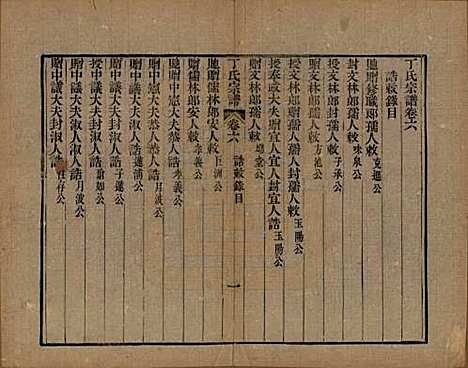 丁氏宗譜卷六
誥敕錄目
貤贈修職郎孺人敕 克嶷公
封文林郎孺人敕 味泉公
授文林郎封孺人敕 子承公
贈文林郎孺人敕 方池公
贈文林郎贈孺人封孺人敕 玉陽公
授奉政大夫贈宜人封宜人誥 玉陽公
贈文林郎孺人敕 公
丁氏宗譜 卷六 誥敕錄目 一
貤贈儒林郎安人敕 上洲公
贈儒林郎安人敕 秉義公
貤贈中憲大夫恭人誥 秉義公
贈中憲大夫恭人誥 月波公
授中憲大夫恭人誥 蓮浦公
贈中議大夫淑人誥 子遠公
授中議大夫封淑人誥 如公
贈中議大夫淑人誥 月波公
贈中議大夫封淑人 存公